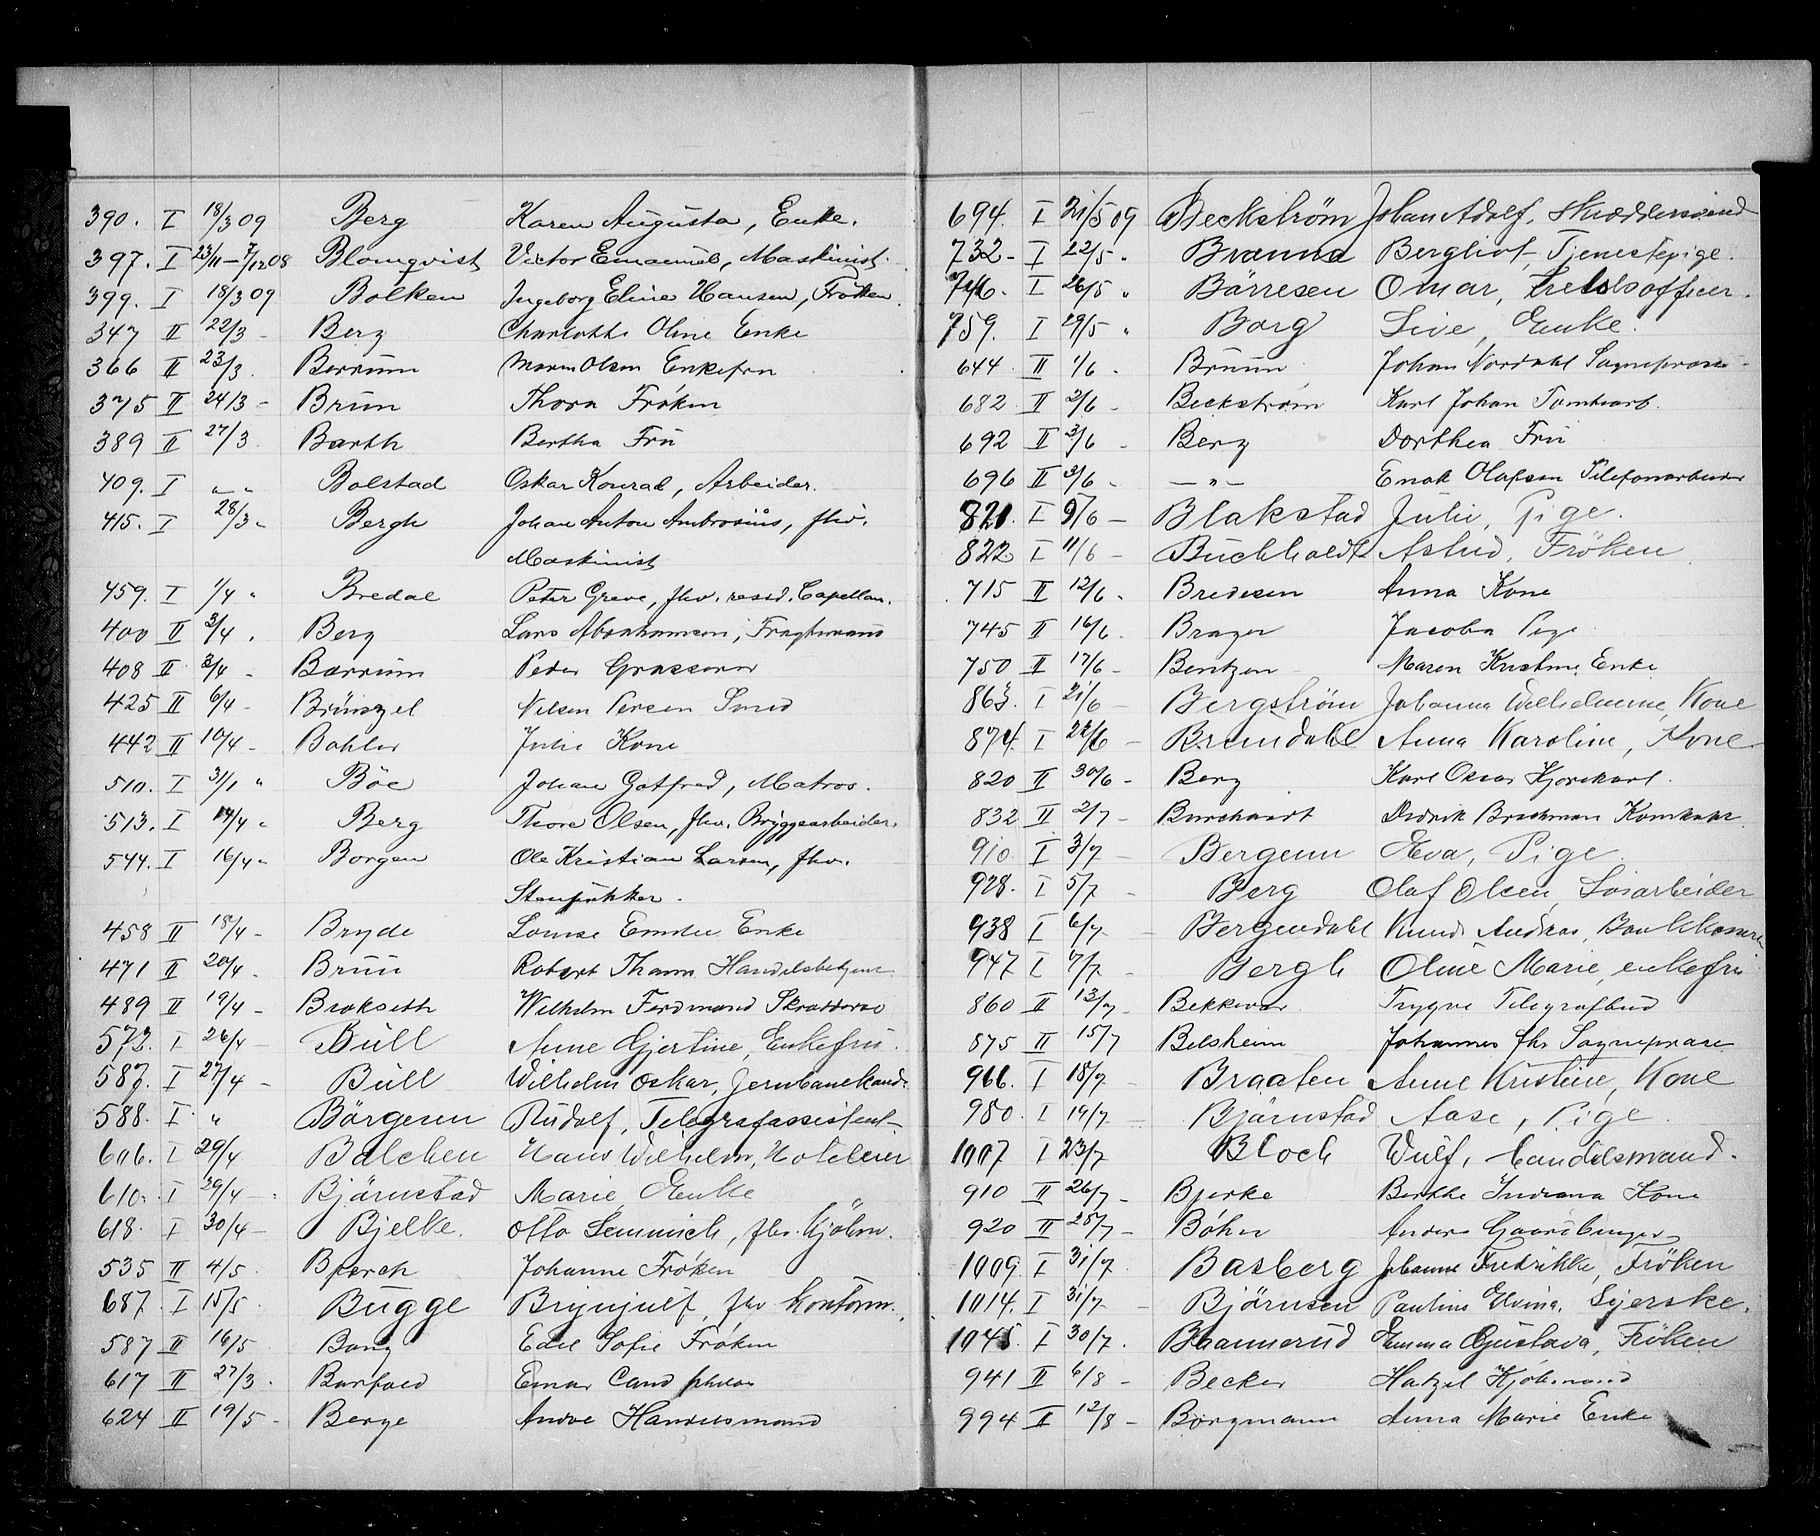 390. I 18/3 09 Berg Karen Augusta, Enke.
397. I 23/11 – 7/12 08 Blomqvist Victor Emanuel, Maskinist.
399. I 18/3 09 Bolken Ingeborg Eline Hansen, Frøken.
347 II 22/3 - Berg Charlotte Oline Enke
366 II 23/3. Borrum Maren Olsen Enkefru
375 II 24/3 - Brun Thora Frøken
389 II 27/3. Barth Bertha Fru
409. I „ „ Bolstad Oskar Konrad, Arbeider.
415. I 28/3 „ Bergh Johan Anton Ambrosius, fhv.
Maskinist
459. I 1/4 „ Bredal Peter Greve, fhv. resid. Capellan.
400 II 2/4 . Berg Lars Abrahamsen, Fragtmand
408 II 3/4 - Borrum Peder Grosserer
425 II 6/4 - Brünzel Nilsen Persen Smed
442 II 10/4 - Bohler Julie Kone
510. I 31/1 „ Böe Johan Gotfred, Matros.
513. I 14/4 „ Berg Thore Olsen, fhv. Bryggearbeider.
544. I 16/4 „ Borgen Ole Kristian Larsen, fhv.
Stenpukker.
458 II 18/4 - Bryde Louise Emilie Enke
471 II 20/4 . Bruu Robert Thams Handelsbetjent
489 II 19/4 - Brokseth Wilhelm Ferdinand Skrædder
572. I 26/4 — Bull Anne Gjertine, Enkefru.
587. I 27/4 - Bull Wilhelm Oskar, Jernbanekand.
588. I „ Börgesen Rudolf, Telegrafassistent
606. I 29/4 Balchen Hans Wilhelm, Hoteleier
610. I 29/4 - Bjärnstad Marie, Enke
618. I 30/4 - Bjelke. Otto Lemmich, fhv. Kjøbm.
535 II 4/5. Bjerch Johanne Frøken
687. I 15/5. Bugge Brynjulf, fhv Kontorm.
587 II 16/5 Bang Edel Sofie Frøken
617 II 27/3 . Barfoed Einar Cand philos
624 II 19/5 - Berge Andre Handelsmand
694. I 21/5 09 Beckström Johan Adolf, Skræddersvend
732 - I 22/5 „ Branna Bergliot, Tjenestepige.
746. I 26/5 „ Börresen Omar, Fredsofficer.
759. I 29/5 „ Borg Live, Enke.
644 II 1/6. Bruun Johan Nordahl Sogneprest
682 II 2/6 - Beckström Karl Johan Tomtearb.
692 II 3/6 - Berg Dorthea Fru
696 II 3/6 - — „ — Enok Olafsen Telefonarbeider
821. I 9/6 — Blakstad Julie, Pige.
822. I 11/6 — Buchholdt Astrid, Fröken
715 II 12/6 - Bredesen Anna Kone
745 II 16/6. Brager Jacoba Pige
750 II 17/6 - Bentzen Maren Kristine Enke
863. I 21/6 — Bergström Johanna Wilhelmine, Kone
874. I 22/6 — Bremdahl Anna Karoline, Kone.
820 II 30/6 - Berg Karl Oscar Kjørekarl.
832 II 2/7 - Burchardt Didrik Brochman
910 I 3/7 — Bergenn Eva, Pige.
928. I 5/7 - Berg Olaf Olsen, Løsarbeider
938 I 6/7 - Bergendahl Knud Andreas, Bankkasserer
947 I 7/7 - Bergh Oline Marie, enkefru
860 II 13/7 - Bekkevar Trygve Telegrafbud
875 II 15/7 Belsheim Johannes fhv Sogneprest
966. I 18/7 - Braaten Anne Kristine, Kone
980. I 19/7 Bjärnstad Aase, Pige.
1007 I 23/7 Bloch Wulf, handelsmand.
910 II 26/7 - Bjerke Berthe Indiana Kone
920 II 25/7 - Bøhn Anders Gaardbruger
1009. I 31/7 Basberg Johanne Fredrikke, Fröken
1014. I 31/7 - Björnsen Pauline Elvina, Syerske.
1045 I 30/7. Brannerud Emma Gustava, Fröken
941 II 6/8 - Becker Hatzel Kjøbmand
994 II 12/8 - Borgmann Anna Marie Enke